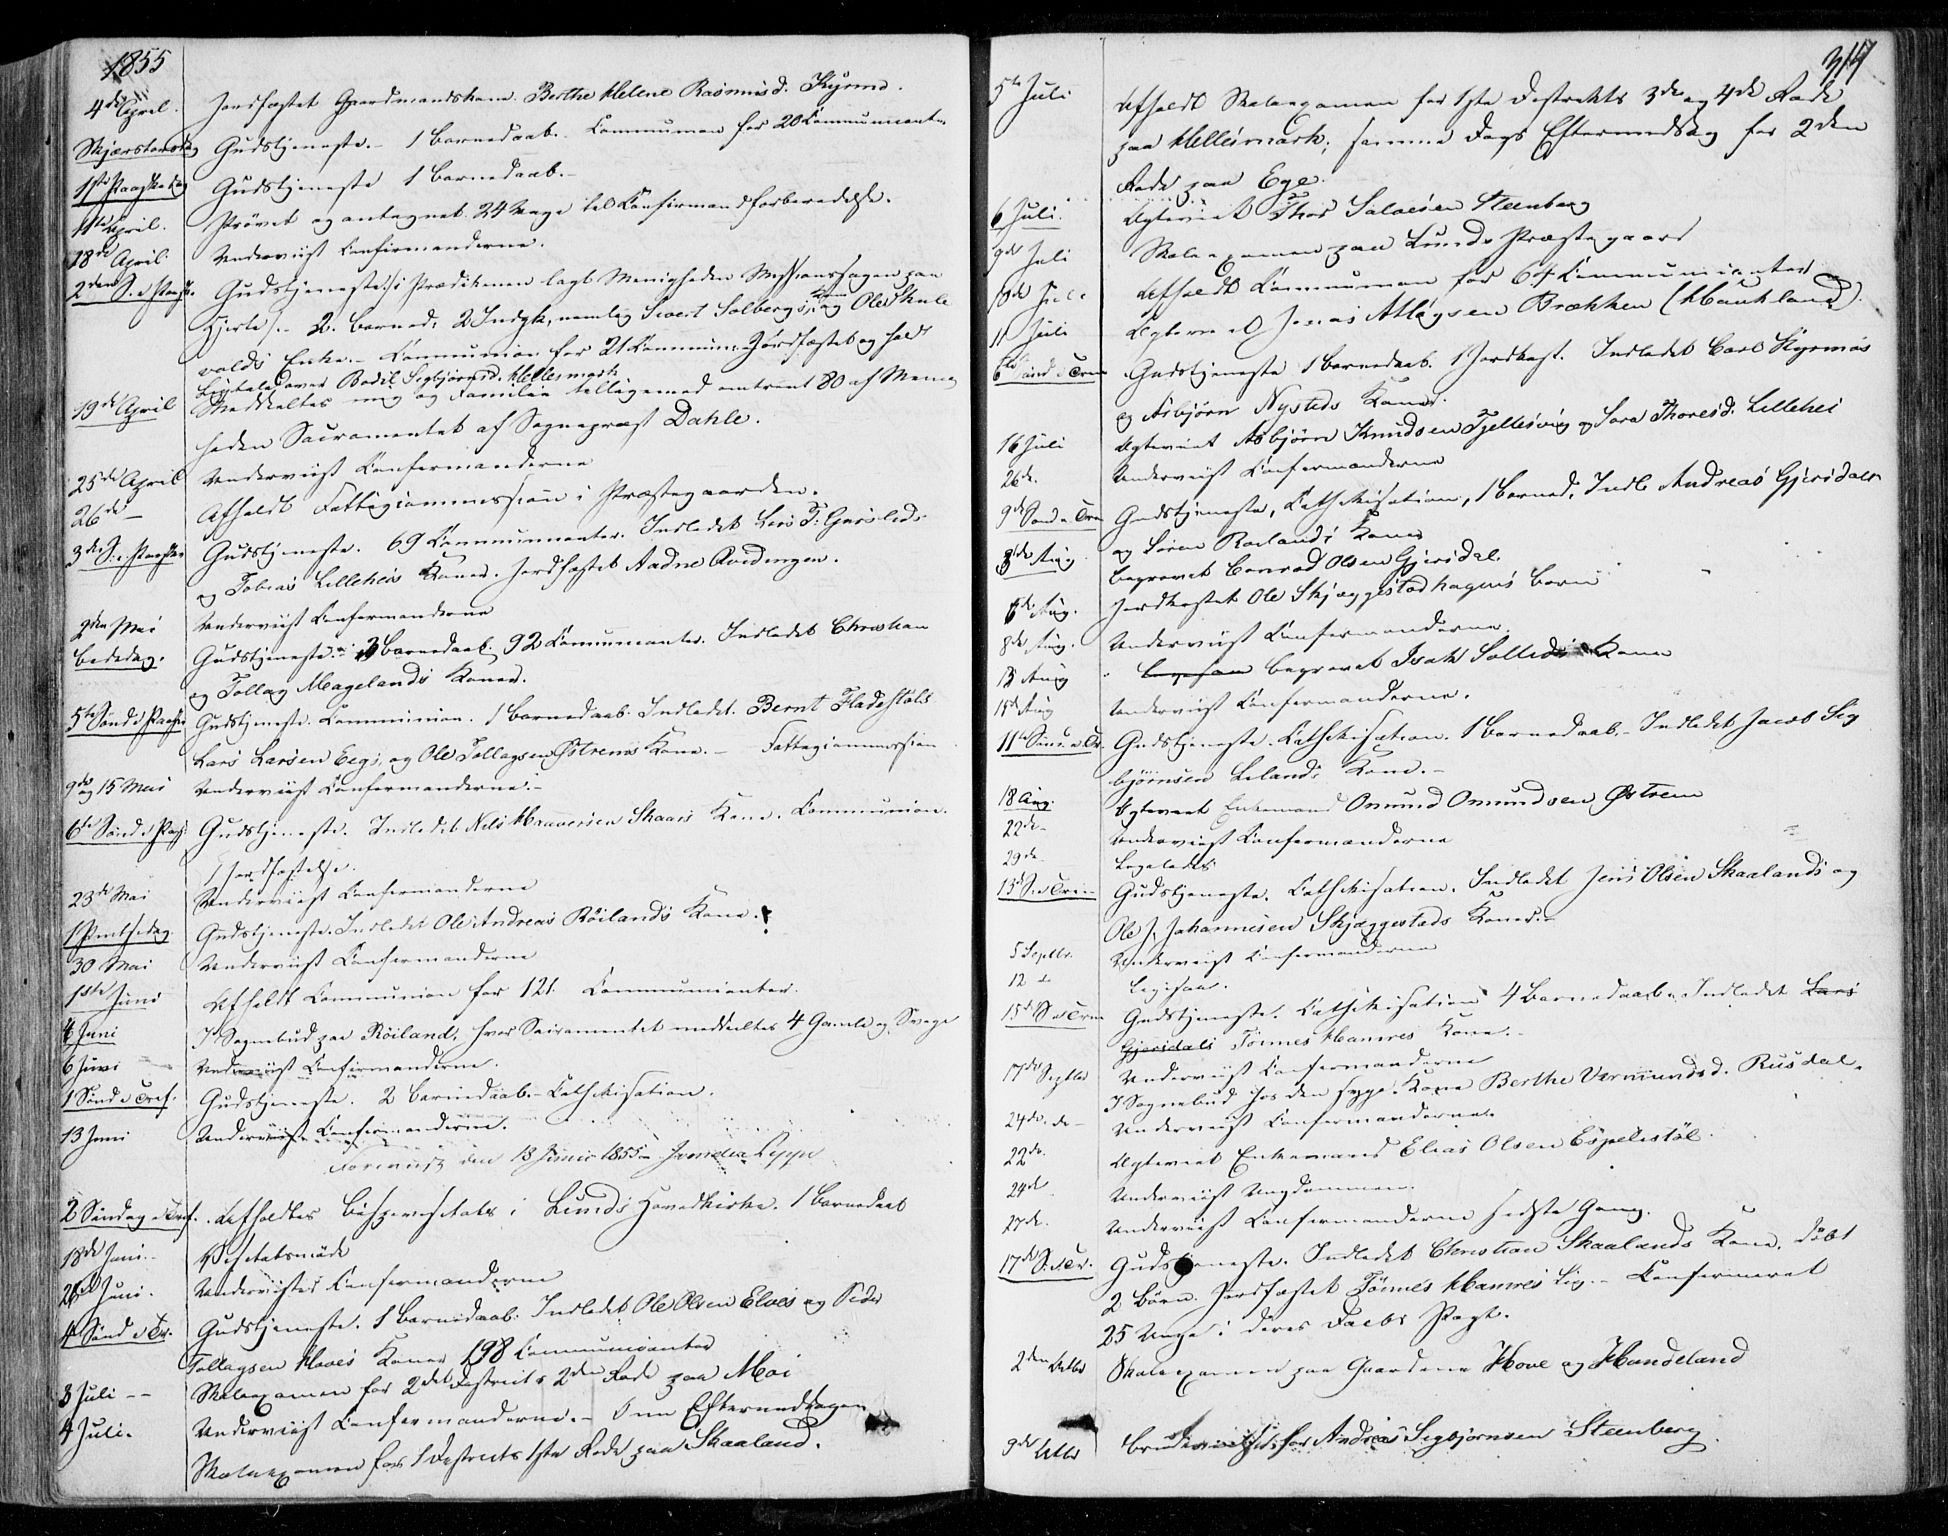 1855
4de April. Jordfæstet Gaardmandskone Berthe Helene Rasmusd. Kyrmo.
Skjærstorsdag Gudstjeneste. - 1 barnedaab. Communion for 20 Communicanter
1ste Paaskedag Gudstjeneste 1 barnedaab. -
11te April. Prøvet og antaget 24 Unge til Confirmandforberedelse.
18de April. Underviist Confirmanderne.
2den S. e. Paaske. Gudstjeneste (i Prædikenen lagt Menigheden Missionssagen paa
Hjerte). - 2 barned. 2 Indgk, nemlig Sivert Solbergs Kone og Ole Skule
volds Enke. - Communion for 21 Commun. Jordfæstet og holdt
Ligtale over Bodil Segbjørnsd. Hellesmark
19de April Meddeeltes mig og Familie tilligemed omtrent 80 af Menig
heden Sacramentet af Sognepræst Dahle.
25de April Underviist Confirmanderne
26de - Afholdt Fattigcommission i Præstegaarden.
3die S. e. Paaske Gudstjeneste. 69 Communicanter. Indledet Lars T. Gursleds
og Tobias Lilleheis Koner. Jordfæstet Aadne Qvedingen.
2den Mai Underviist Confirmanderne
Bededag. Gudstjeneste. 3 barnedaab. 92 Communicanter. Indledet Christian
og Tollag Magelands Koner.
5te Sønd. e. Paaske Gudstjeneste. Communion. 1 barnedaab. Indledet Bernt Fladestøls
Lars Larsen Eegs, og Ole Tollagsen Østrems Kone. - Fattigcommission
9de og 15 Mai Underviist Confirmanderne. -
6te Sønd. e. Paas. Gudstjeneste. Indledet Nels Hanversen Skaars Kone. Communion.
1 Jordfæstelse.
23de Mai Underviist Confirmanderne
1 Pintsedag Gudstjeneste. Indledet Ole Andreas Röilands Kone.
30 Mai Underviist Confirmanderne
1ste Juni Afholdt Communion for 121 Communicanter.
4 Juni I Sognebud paa Röiland, hvor Sacramentet meddeeltes 4 Gamle og Svage
6 Juni Underviist Confirmanderne.
1 Sønd. e. Tref. Gudstjeneste. 2 barnedaab. - Cathekisation.
13 Juni Underviist Confirmanderne.
Foreviist den 18 Juni 1855 -
2 Søndag e. Tref. Afholdtes Bispevisitats i Lunds Hovedkirke. 1 barnedaab
18de Juni. - Visitatsmøde
26de Juni. Undervistes Confirmanderne
4 Sønd. e. Tr. Gudstjeneste. 1 barnedaab. Indledet Ole Olsen Elves og Peder
Tollagsen Hoves Koner 198 Communicanter
3 Juli - - Skoleexamen for 2det Districts 2den Rode paa Moi
4 Juli. Underviist Confirmanderne. - Om Eftermiddagen
Skoleexamen for 1 Districts 1ste Rode paa Skaaland.
314
5te Juli Afholdt Skoleexamen for 1ste Districts 3die og 4de Rode
paa Hellesmark; samme Dags Eftermiddag for 2den
Rode paa Ege.
6 Juli. Ægteviet Thor Salvesen Steenberg
9de Juli Skoleexamen paa Lunds Præstegaard
10de Juli Afholdt Communion for 64 Communicanter
11 Juli Ægteviet Jonas Atlagsen Brækken (Haukland)
6te Sønd. e. Trin Gudstjeneste 1 barnedaab. 1 Jordkast. Indledet Carl Kyrmos
og Asbjørn Nysteds Koner.
16 Juli Ægteviet Asbjørn Knudsen Tjellesvig og Sara Thoresd. Lillehei
26de. Underviist Confirmanderne
9de Sønd. e. Trin Gudstjeneste, Cathekisation, 1 barned. Indl. Andreas Gjersdals
og Søren Roilands Koner
3de Aug. begravet Conrad Olsen Gjersdal.
6te Aug. Jordkastet Ole Skjæggestadhagens Barn
8de Aug. Underviist Confirmanderne.
13 Aug begravet Isak Solleds Kone
15de Aug Underviist Confirmanderne.
11te Sønd. e. Tr. Gudstjeneste. Cathekisation. 1 barnedaab. - Indledet Jacob Seg
bjørnsen Lelands Kone. -
18 Aug. Ægteviet Enkemand Omund Omundsen Østrem
22de - Underviist Confirmanderne
29de Ligeledes
13de S. e. Tri - Gudstjeneste. Cathekisation. Indledet Jens Olsen Skaalands og
Ole J. Johannesen Skjæggestads Koner. -
5 Septbr. Underviist Confirmanderne
12 - Ligesaa.
15de S. e. Trin Gudstjeneste. Cathekisation 4 barnedaab. - Indledet Lars
Gjersdals Tönnes Hamres Kone. -
17de Septbr Underviist Confirmanderne
I Sognebud hos den syge Kone Berthe Vermundsd. Rusdal.
24de. de - Underviist Confirmanderne.
22de. Ægteviet Enkemand Elias Olsen Espelistøl.
24de Underviist Ungdommen.
27de. Underviist Confirmanderne sidste Gang.
17de S. e. Tr. Gudstjeneste. Indledet Christian Skaalands Kone, døbt
2 Børn. Jordfæstet Tönnes Hamres Lig. - Confirmeret
25 Unge i deres Daabs Pagt.
2den Octbr Skoleexamen paa Gaardene Hove og Handeland
9de Octbr Brudevielse for Andreas Segbjørnsen Steenberg.